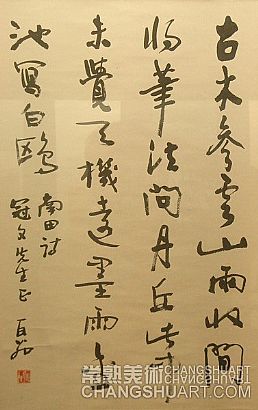 古木參雲山雨收閒
將筆法問丹丘此中
未覺天機遠墨雨
池寫白鷗
南田詩
冠文先生正
常熟美術 CHANGSHUART
CHANGSHUART.COM